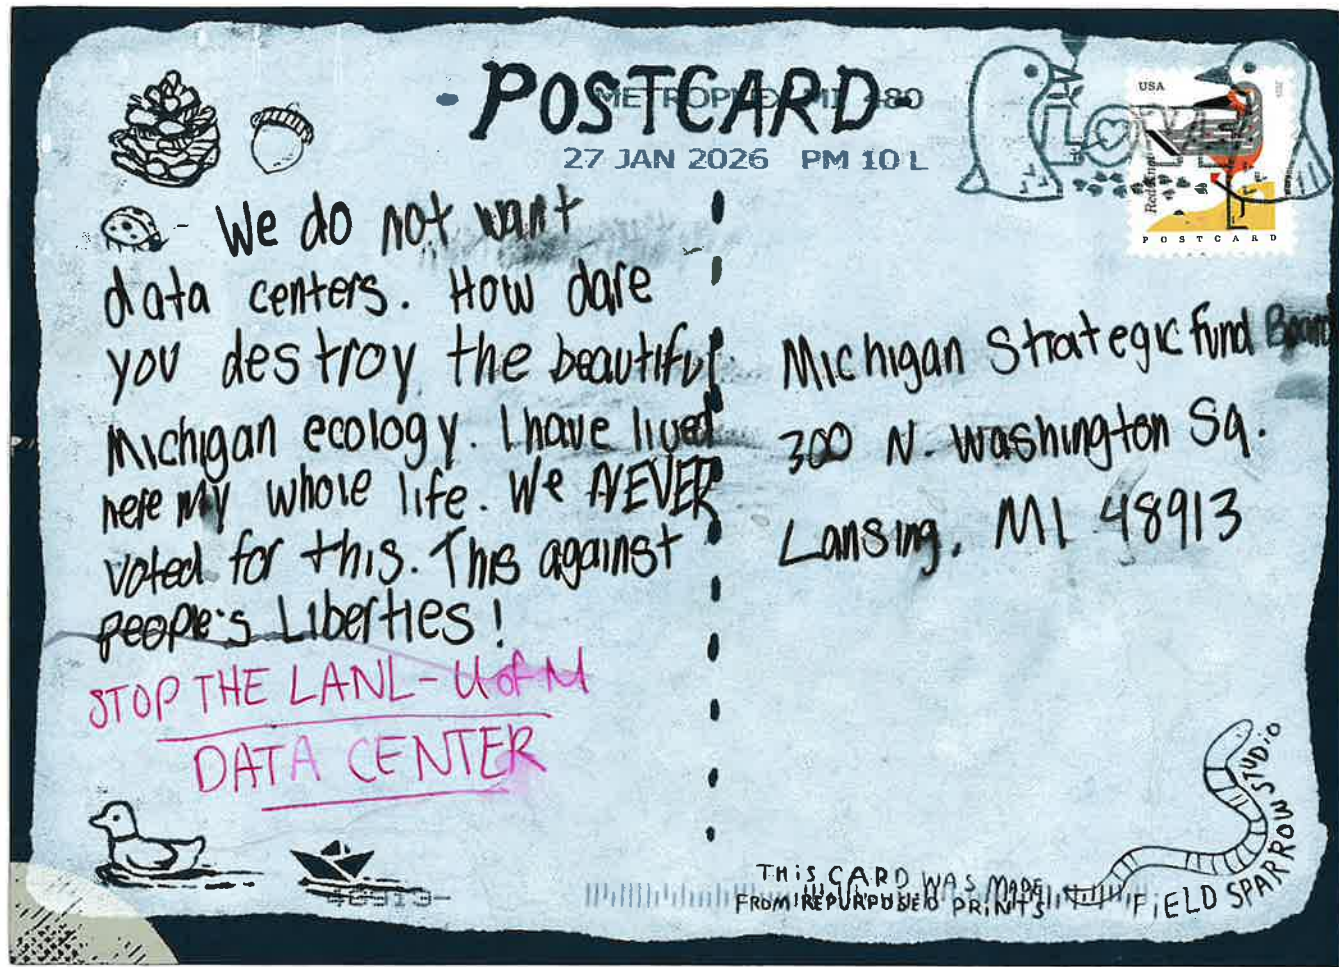 POSTCARD
METROPLEX MI 480
27 JAN 2026 PM 10 L
LOVE
USA
POSTCARD
We do not want
data centers. How dare
you destroy the beautiful
Michigan ecology. I have lived
here my whole life. We NEVER
voted for this. This against
people's Liberties!
STOP THE LANL-U of M
DATA CENTER
Michigan Strategic Fund Board
300 N. Washington Sq.
Lansing, MI 48913
THIS CARD WAS MADE
FROM REPURPOSED PRINTS
FIELD SPARROW STUDIO